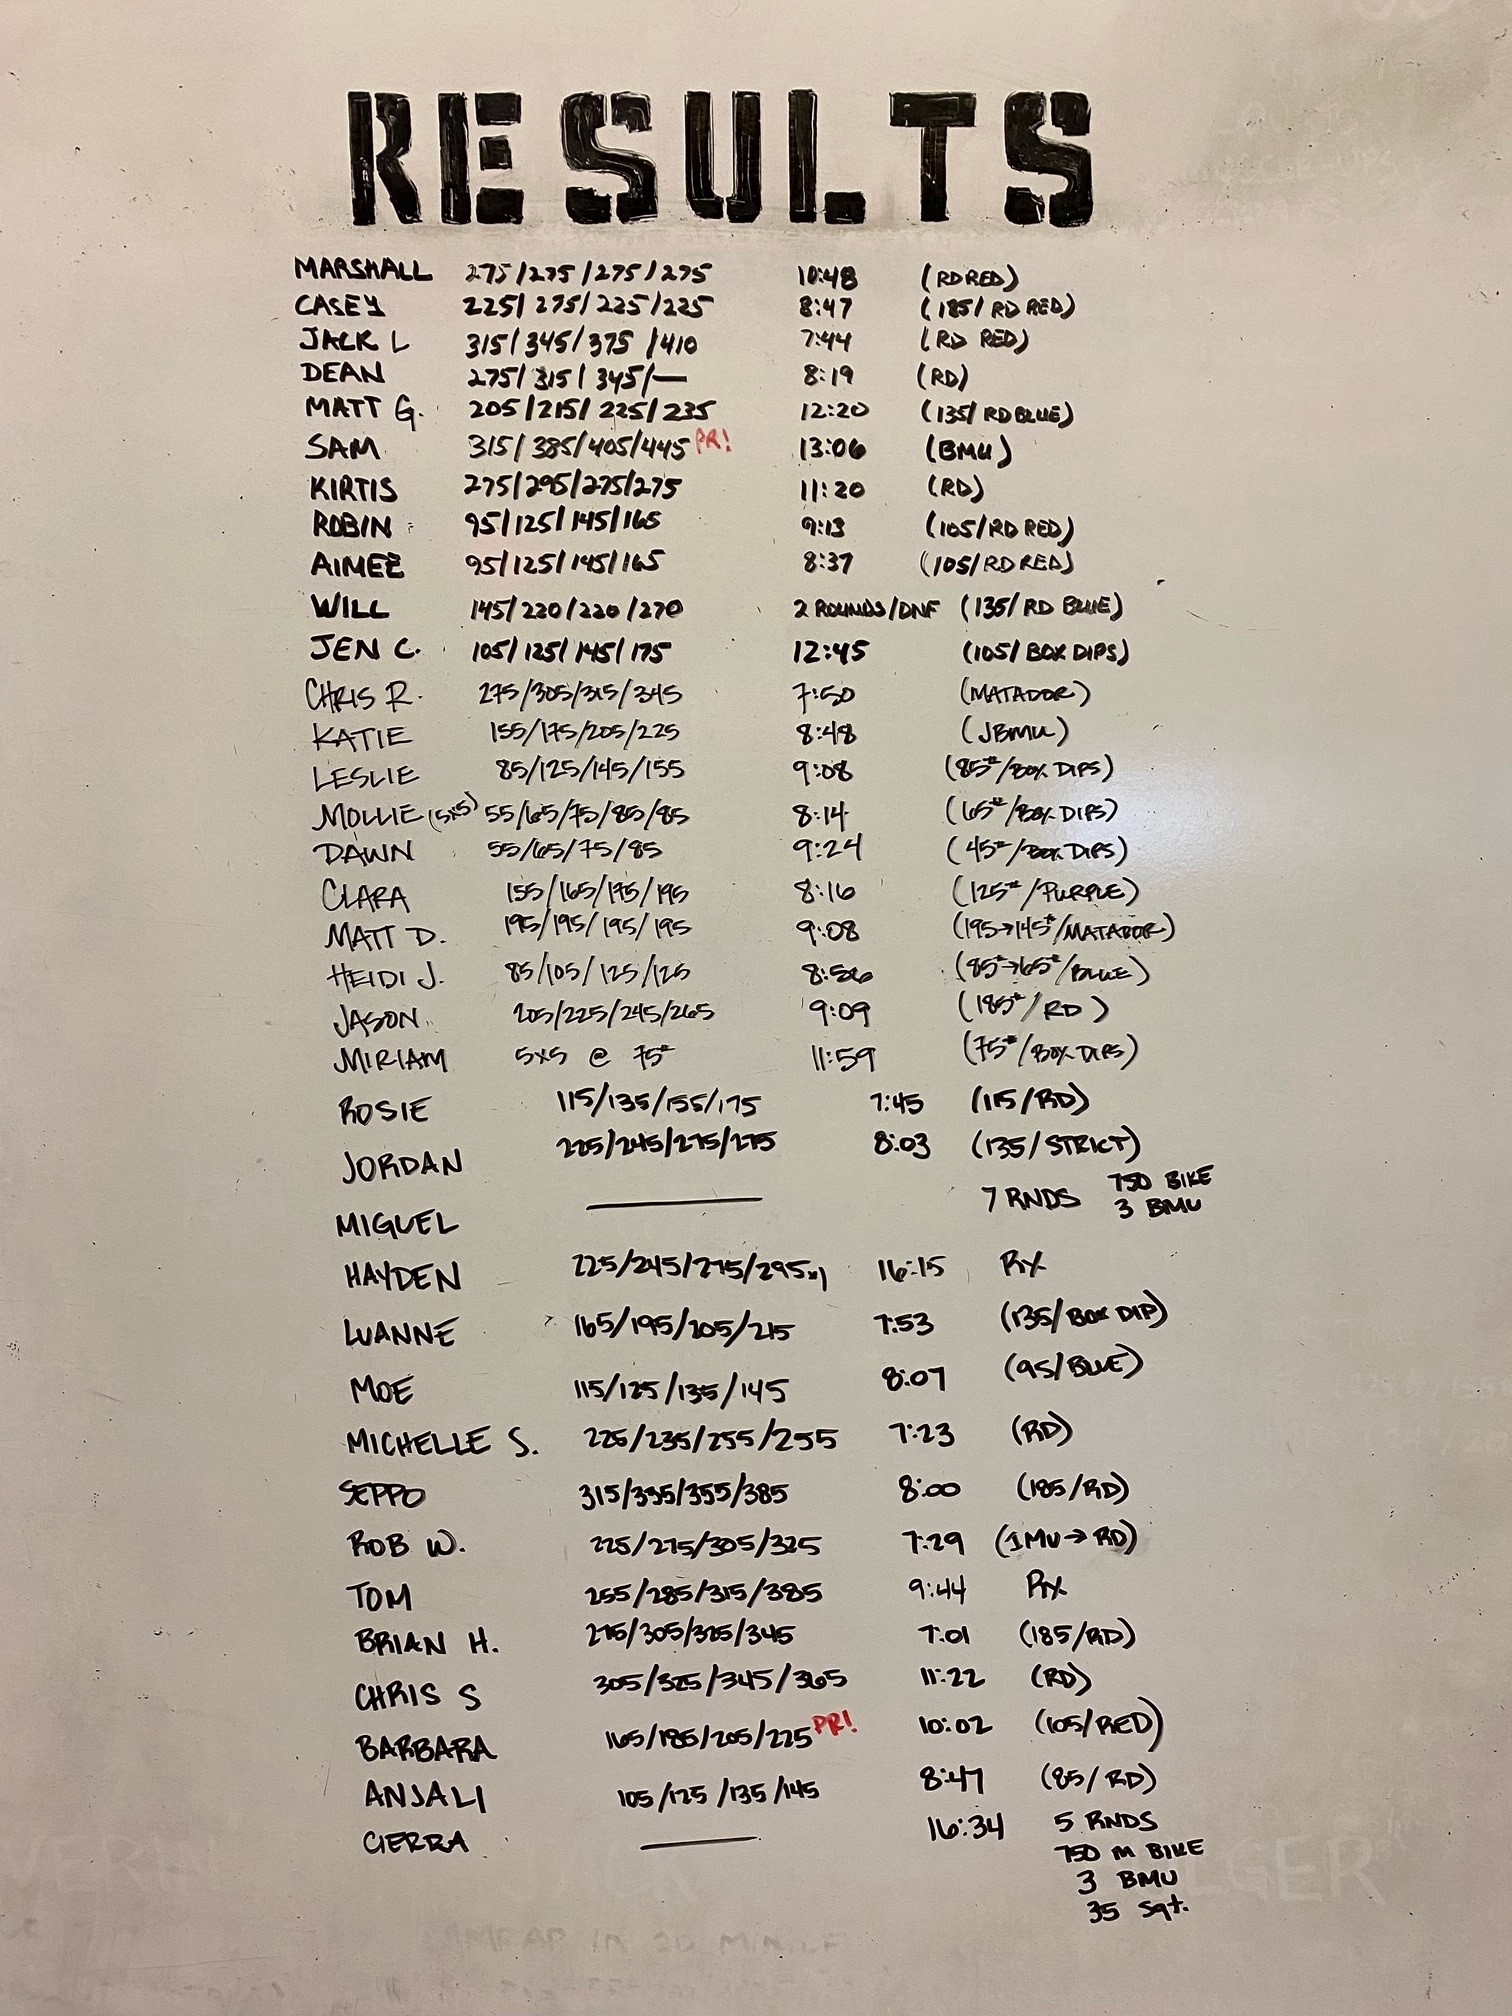 RESULTS
MARSHALL 275/275/275/275 10:48 (RD RED)
CASEY 225/275/225/225 8:47 (185/RD RED)
JACK L 315/345/375/410 7:44 (RD RED)
DEAN 275/315/345/— 8:19 (RD)
MATT G. 205/215/225/235 12:20 (135/RD BLUE)
SAM 315/385/405/445 PR! 13:06 (BMU)
KIRTIS 275/295/275/275 11:20 (RD)
ROBIN 95/125/145/165 9:13 (105/RD RED)
AIMEE 95/125/145/165 8:37 (105/RD RED)
WILL 145/220/220/270 2 ROUNDS/DNF (135/RD BLUE)
JEN C. 105/125/145/175 12:45 (105/BOX DIPS)
CHRIS R. 275/305/315/345 7:50 (MATADOR)
KATIE 155/175/205/225 8:48 (JBMU)
LESLIE 85/125/145/155 9:08 (85#/BOX DIPS)
MOLLIE (5x5) 55/65/75/85/85 8:14 (65#/BOX DIPS)
DAWN 55/65/75/85 9:24 (45#/BOX DIPS)
CLARA 155/165/195/195 8:16 (125#/PURPLE)
MATT D. 195/195/195/195 9:08 (195→145#/MATADOR)
HEIDI J. 85/105/125/125 8:56 (85#→65#/BLUE)
JASON 205/225/245/265 9:09 (185#/RD)
MIRIAM 5x5 @ 75# 11:59 (75#/BOX DIPS)
ROSIE 115/135/155/175 7:45 (115/RD)
JORDAN 225/245/275/275 8:03 (135/STRICT)
MIGUEL —— 7 RNDS 750 BIKE
3 BMU
HAYDEN 225/245/275/295x1 16:15 RX
LUANNE 165/195/205/215 7:53 (135/BOX DIP)
MOE 115/125/135/145 8:07 (95/BLUE)
MICHELLE S. 225/235/255/255 7:23 (RD)
SEPPO 315/335/355/385 8:00 (185/RD)
ROB W. 225/275/305/325 7:29 (1MU→RD)
TOM 255/285/315/385 9:44 RX
BRIAN H. 275/305/325/345 7:01 (185/RD)
CHRIS S 305/325/345/365 11:22 (RD)
BARBARA 165/185/205/225 PR! 10:02 (105/RED)
ANJALI 105/125/135/145 8:47 (85/RD)
CIERRA —— 16:34 5 RNDS
750 M BIKE
3 BMU
35 Sqt.